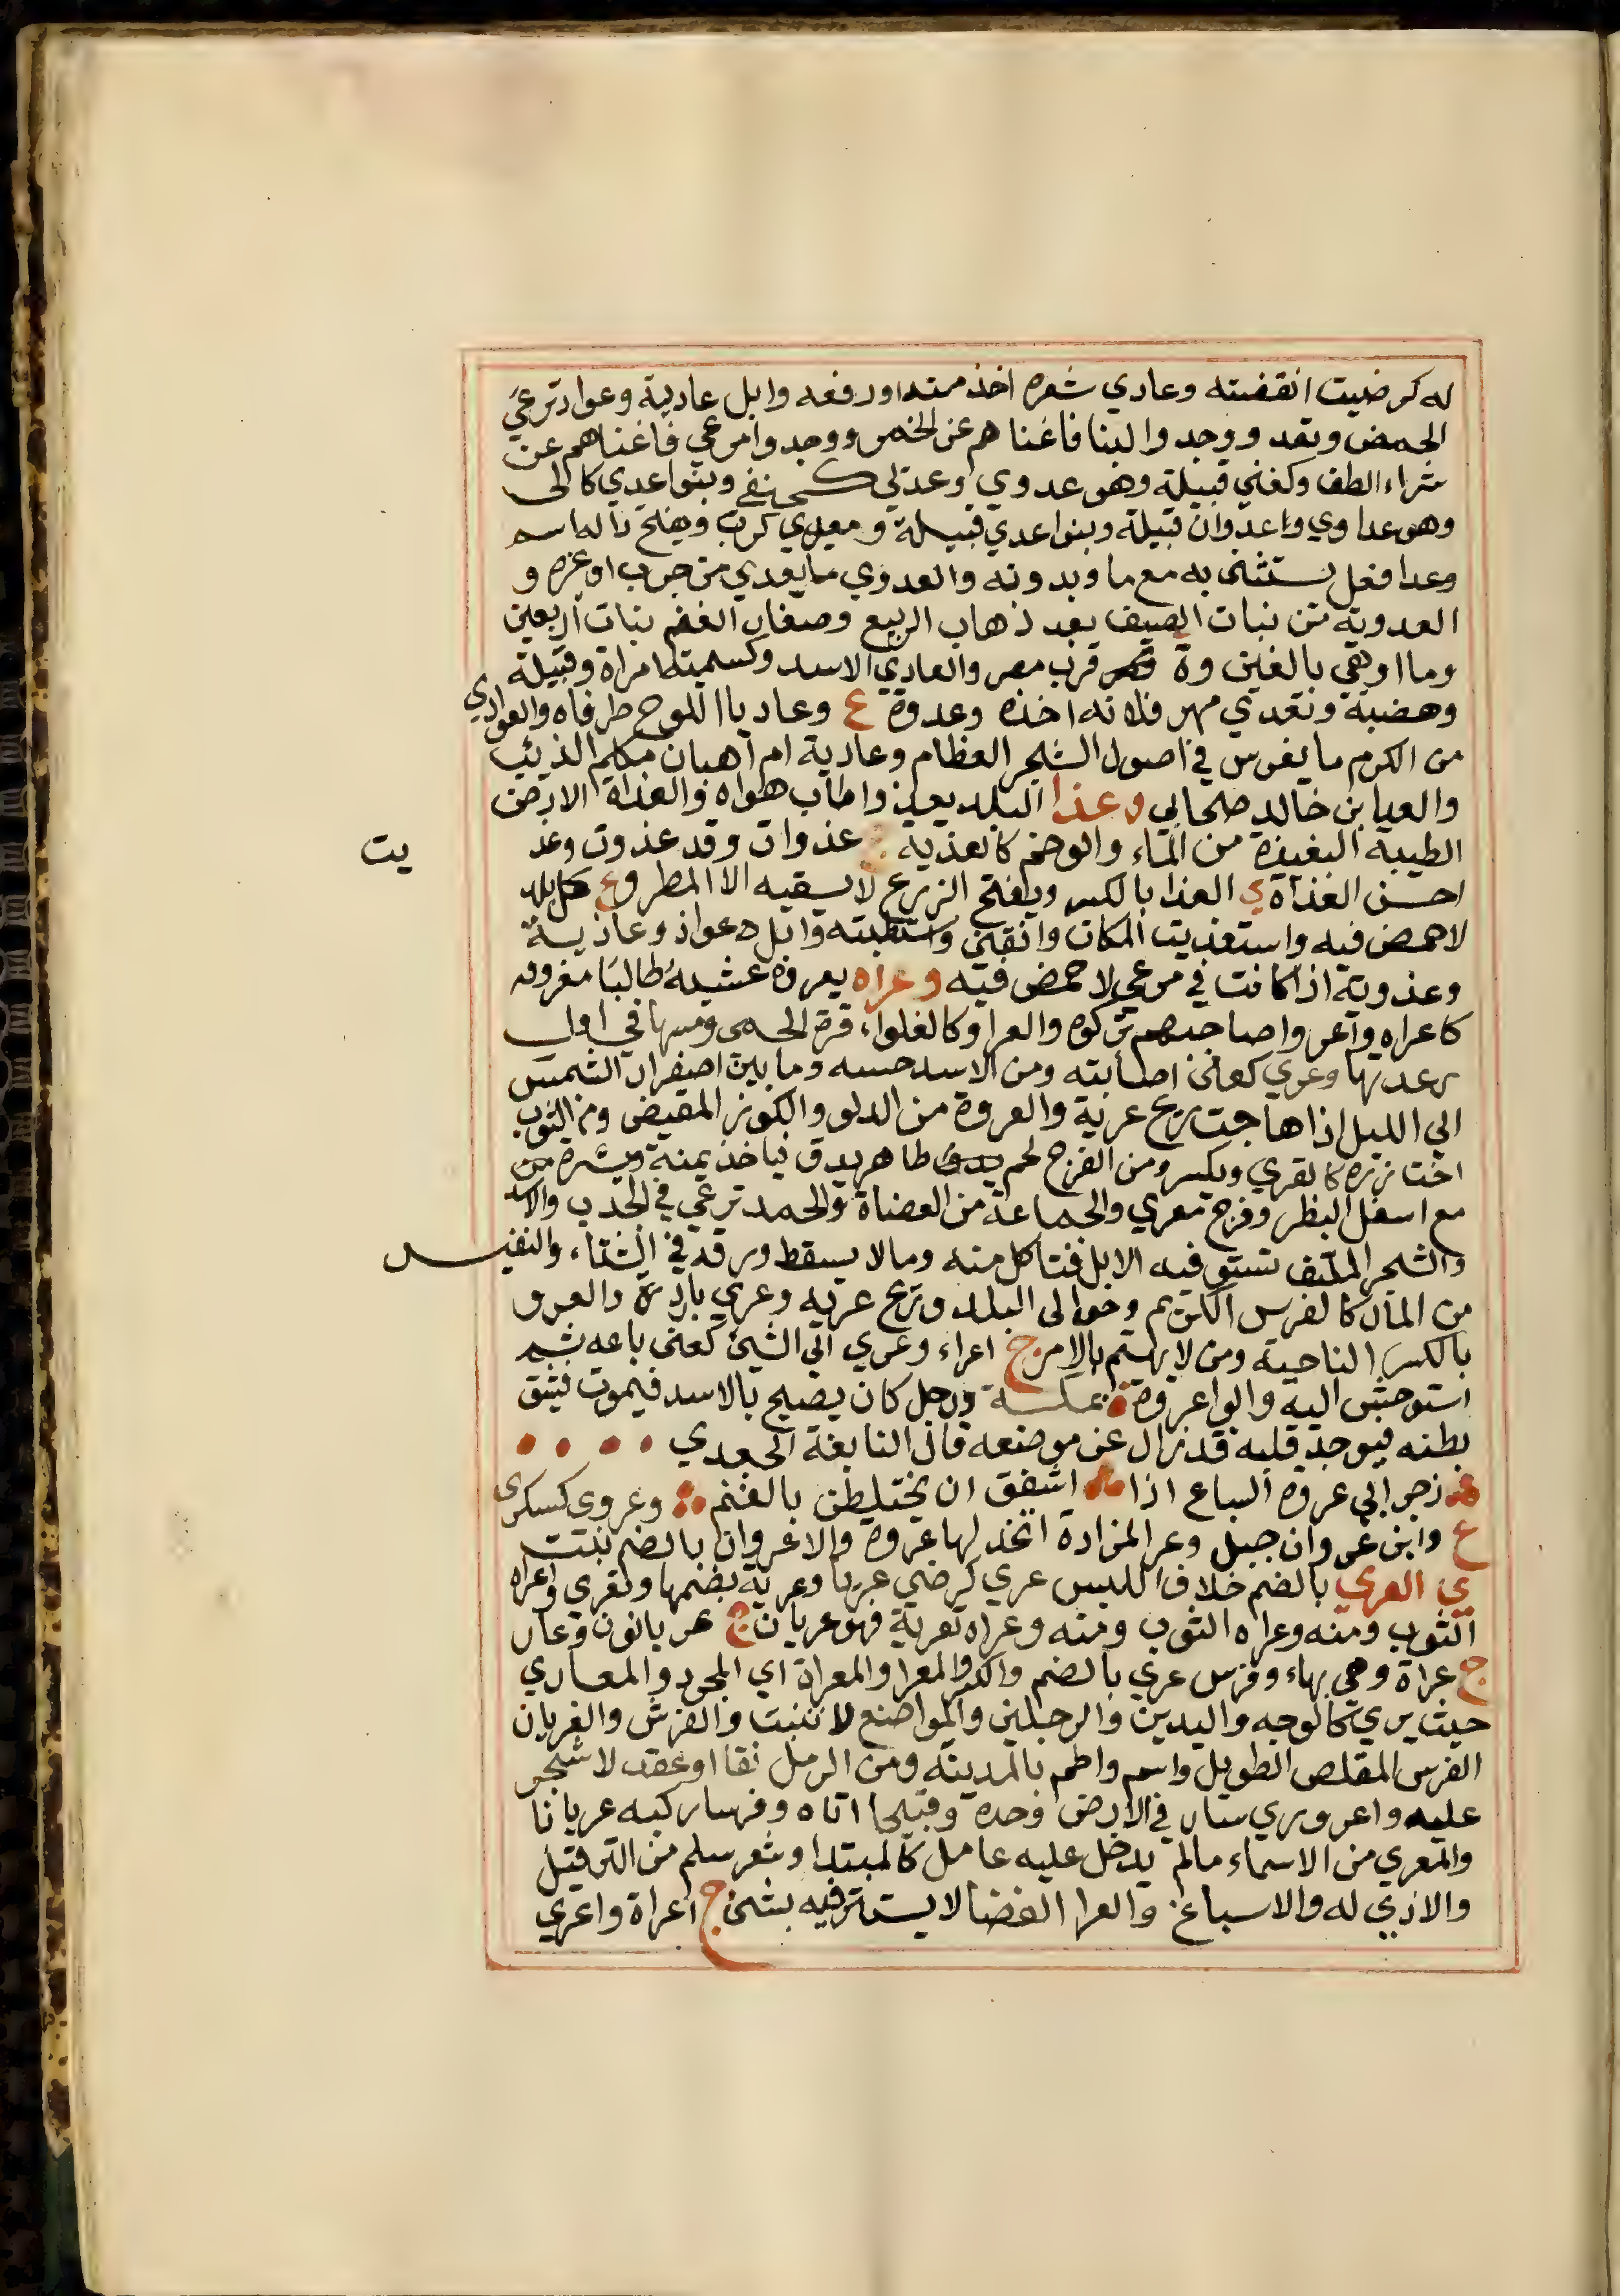 له كرضيت انقفيته وعادي شعره اخذ منه اورفعه وابل عادية وعواد ترعي
الحمض وتعد ووجدوا لبنا فاغناهم عن الخمر ووجدوا مرعي فاغناهم عن
شراء الطف وكغني قبيلة وهو عدوي وعدتي كحنفي وبنوا عدي كالى
وهو عداوي واعدوان قبيلة وبنوا عدي قبيلة ومعدي كرب وفتح داله اسم
وعدا فعل يستثنى به مع ما وبدونه والعدوي ما يعدي من جرب او غره و
العدوية من نبات الصيف بعد ذهاب الربيع وصغار الغنم بنات اربعين
وما اوهي بالغين وة قرب مصر والعادي الاسد وكسميتا امراة وقبيلة
وهضبة وتعدي مهر فلانه اخذه وعدوة ع وعاديا اللوح طرفاه والعوادي
من الكرم ما يغرس في اصول الشجر العظام وعادية ام اهبان مكلم الذئب
والعيا بن خالد صحابي وعذا البلد يعذوا طاب هواه والعذاة الارض
الطيبة البعيذة من الماء والوخم كالعذية ج عذوات وقد عذوت وعذ
يت
احسن العذاة ي العذا بالكسر ويفتح الزرع لا يسقيه الا المطر وع كل بلد
لا حمض فيه واستعذيت المكان وافقني واستطبته وابل ه عواذ وعاذية
وعذوية اذا كانت في مرعي لا حمض فيه وعراه يعروه عشيه طالبا معروفه
كاعراه واعروا صاحبهم تركوه والعرا وكالغلواء قرة الحمى ومسها في اول
رعدتها وعري كعنى اصابته ومن الاسد حسه وما بين اصفرار الشمس
الي الليل اذا هاجت ريح عرية والعروة من الدلو والكوز المقبض ومن الثوب
اخت زره كالعري ويكسر ومن الفرج لحم ظاهر يدق فياخذ يمنة ويسرة من
مع اسفل البظر وفرج معري والجماعة من العضاة والحمد ترعي في الجدب والاسد
والشجر الملتف تستو فيه الابل فتاكل منه وما لا يسقط ورقه في الشتاء والنفيس
من المال كالفرس الكريم وحوالى البلد وريح عريه وعري باردة والعرو
بالكسر الناحية ومن لا يهتم بالامر ج اعراء وعري الي الشئ كعنى باعه ثم
استوحش اليه وابوا عروة ة بمكة ورجل كان يصيح بالاسد فيموت فيشق
بطنه فيوجد قلبه قد زال عن موضعه قال النابغة الجعدي
زجر ابي عروة السباع اذا اشفق ان يختلطن بالغنم وعروى كسكرى
ع وابن عروان جبل وعر المزادة اتخذ لها عروة والاعروان بالضم نبت
ي العري بالضم خلاف اللبس عري كرضي عريا وعرية بضمها وتعرى واعراه
الثوب ومنه وعراه الثوب ومنه وعراه تعرية فهو عريان ج عريانون وعار
ج عراة وهي بهاء وفرس عري بالضم والكدو المعرا والمعراة اي المجرد والمعاري
حيث يري كالوجه واليدين والرجلين والمواضع لا تنبت والفرش والعريان
الفرس المقلص الطويل واسم واطم بالمدينة ومن الرمل نقا او عقد لا شجر
عليه واعروري سار في الارض وحده وقبيحا اتاه وفرسا ركبه عريانا
والمعري من الاسماء مالم يدخل عليه عامل كالمبتدا وشعر سلم من الترفيل
والاذي له والاسباغ والعرا الفضا لا يستتر فيه بشئ ج اعراة واعري